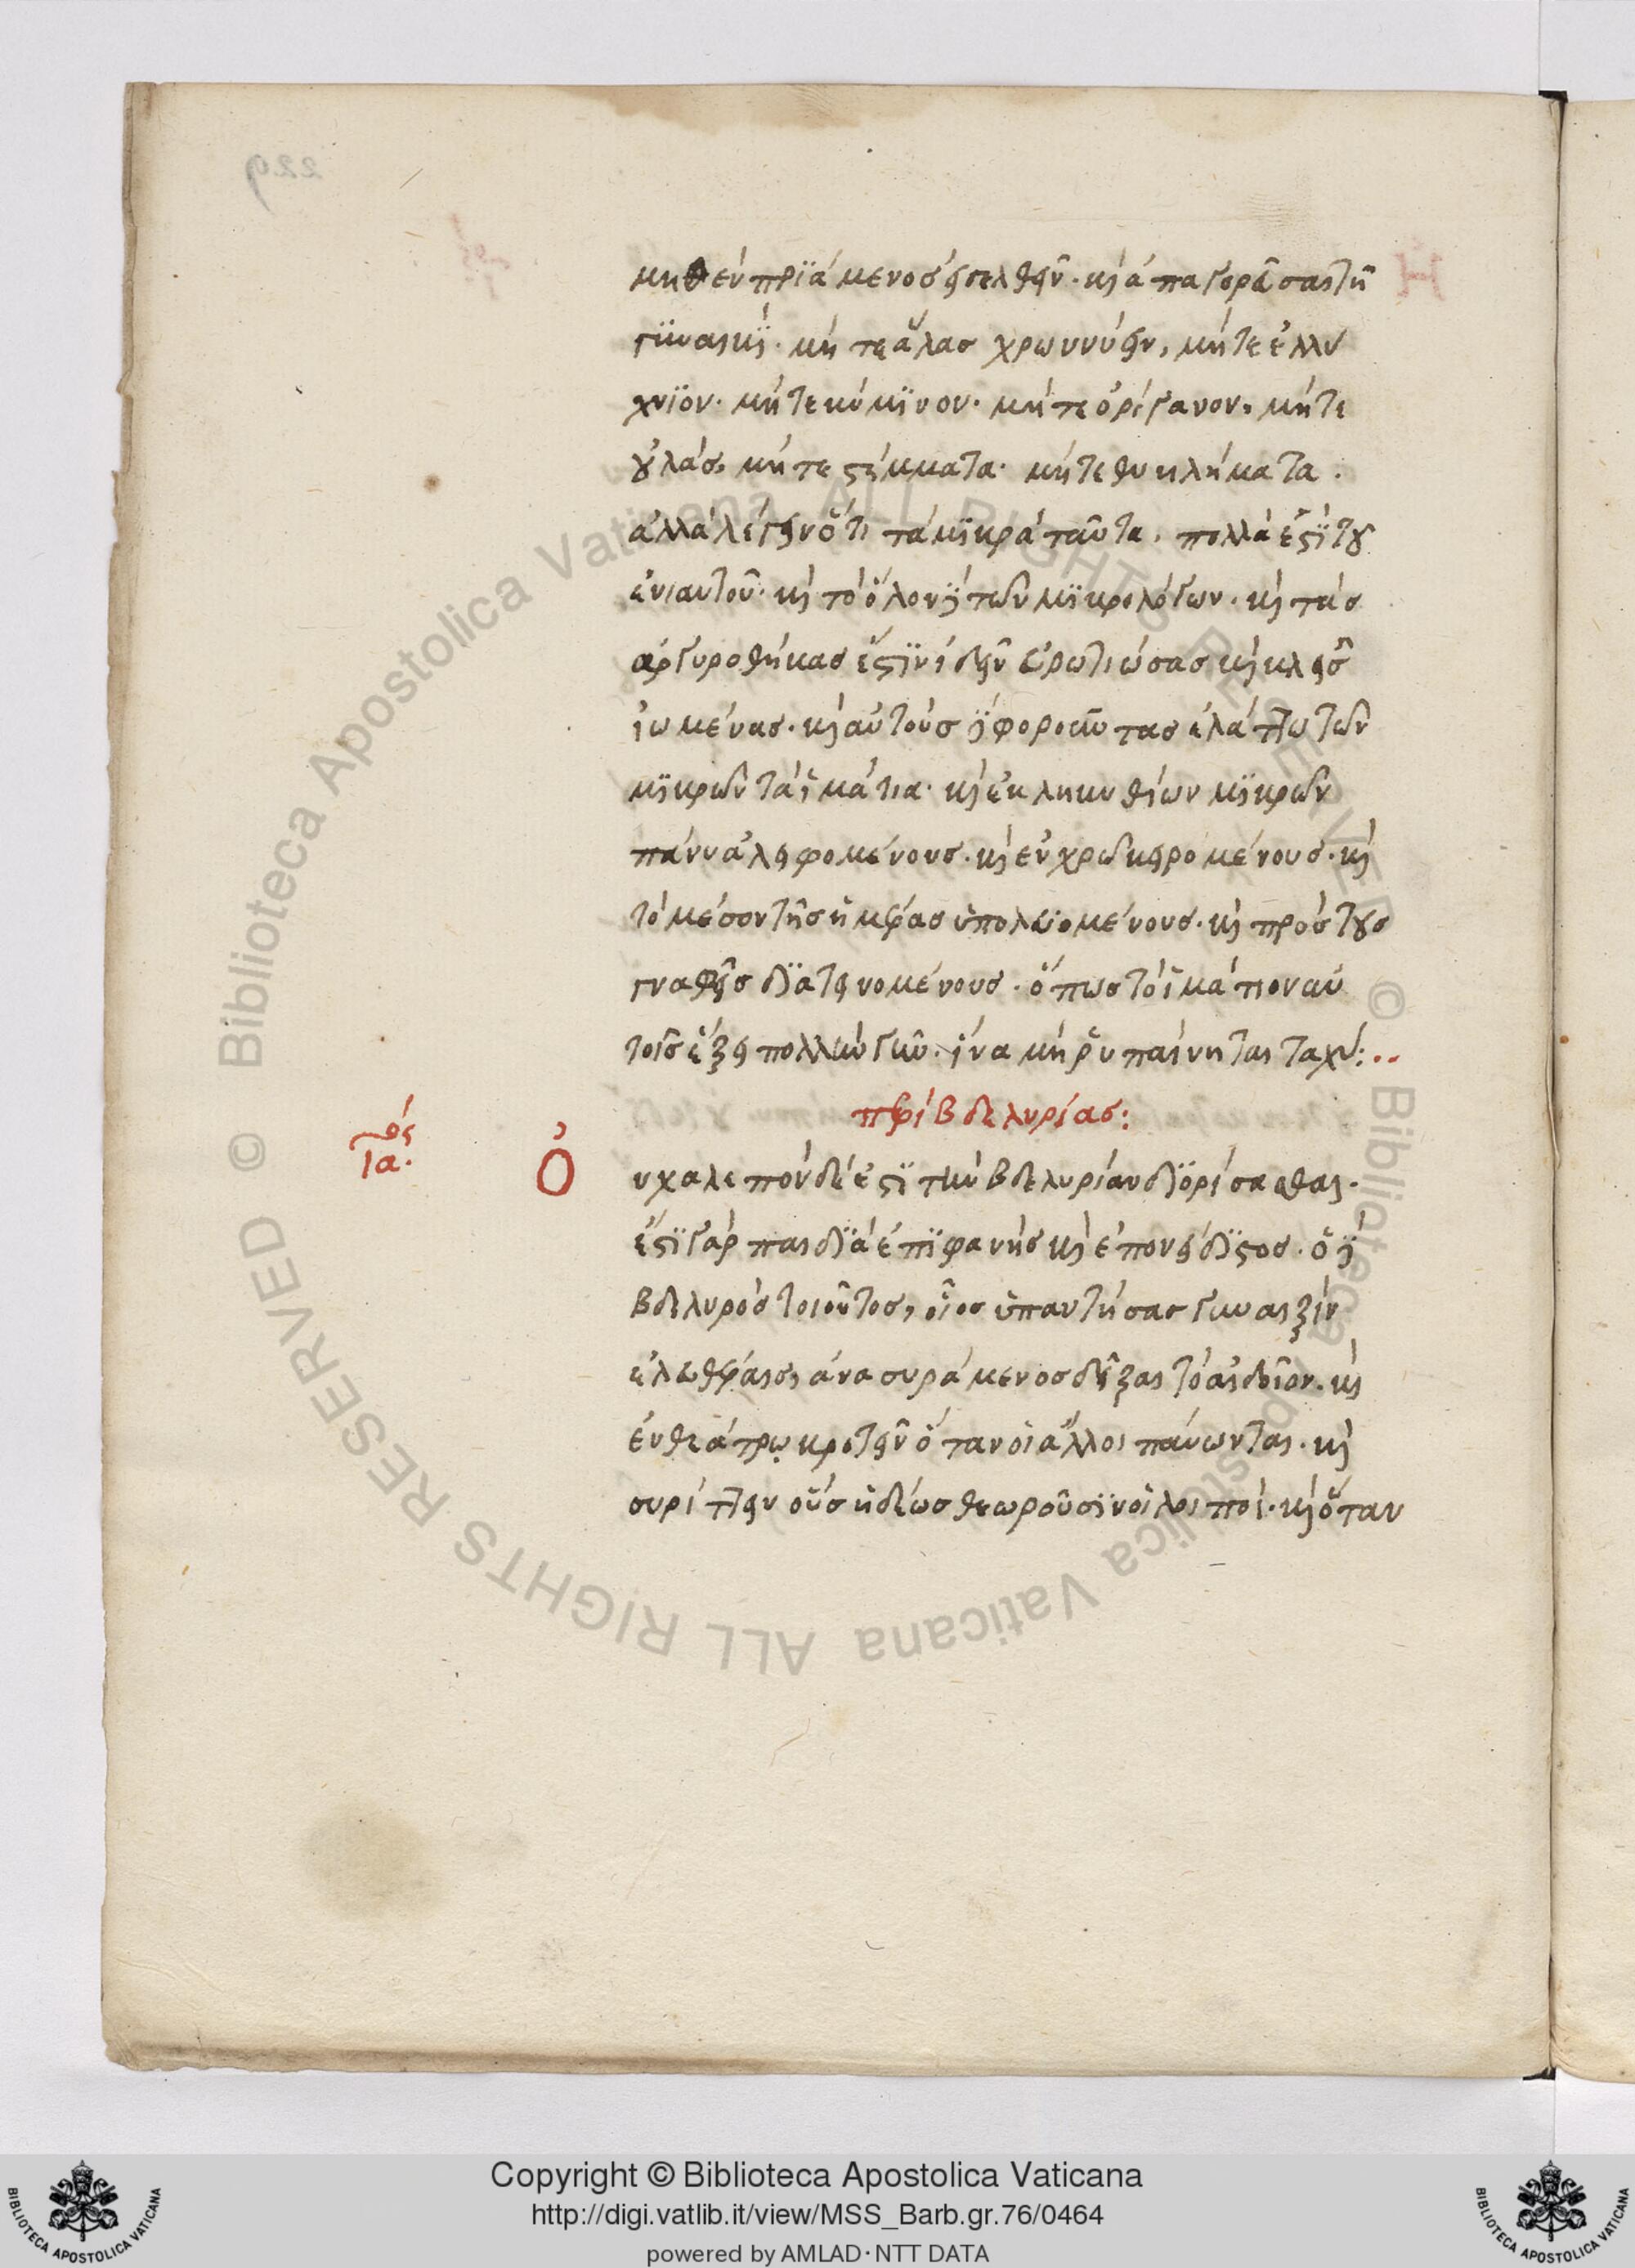 μηθὲν πριάμενος εἰσελθεῖν· καὶ ἀπαγορεῦσαι τῆ
γυναικὶ· μήτε ἅλας χρωννύειν, μήτε ἐλλύ
χνιον· μήτε κύμινον· μήτε ὀρίγανον· μήτε
οὐλάς, μήτε στέμματα· μήτε θυηλήματα.
ἀλλὰ λέγειν ὅτι τὰ μικρὰ ταῦτα, πολλά ἐστι τοῦ
ἐνιαυτοῦ· καὶ τὸ ὅλον δὲ τῶν μικρολόγων· καὶ τὰς
ἀργυροθήκας ἔστιν ἰδεῖν εὐρωτιώσας καὶ κλεῖς
ἰωμένας· καὶ αὐτοὺς δὲ φοροῦντας ἐλάττω τῶν
μικρῶν τὰ ἱμάτια· καὶ ἐκ ληκυθίων μικρῶν
πάνυ ἀλειφομένους· καὶ ἐν χρῷ κειρομένους· καὶ
τὸ μέσον τῆς ἡμέρας ὑπολυομένους· καὶ πρὸς τοὺς
γναφεῖς διατεινομένους· ὅπως τὸ ἱμάτιον αὐ
τοῖς ἕξει πολλὴν γῆν· ἵνα μὴ ῥυπαίνηται ταχύ:..
περὶ βδελυρίας:
ιά.
Οὐ χαλεπὸν δέ ἐστι τὴν βδελυρίαν διορίσασθαι·
ἔστι γὰρ παιδιὰ ἐπιφανὴς καὶ ἐπονείδιστος· ὁ δὲ
βδελυρὸς τοιοῦτος, οἷος ὑπαντήσας γυναιξὶν
ἐλευθέραις, ἀνασυράμενος δεῖξαι τὸ αἰδοῖον· καὶ
ἐν θεάτρῳ κροτεῖν ὅταν οἱ ἄλλοι παύωνται· καὶ
συρίττειν οὓς ἡδέως θεωροῦσιν οἱ λοιποί· καὶ ὅταν
229
© Biblioteca Apostolica Vaticana ALL RIGHTS RESERVED
© Biblioteca Apostolica Vaticana ALL RIGHTS RESERVED
Copyright © Biblioteca Apostolica Vaticana
http://digi.vatlib.it/view/MSS_Barb.gr.76/0464
powered by AMLAD·NTT DATA
BIBLIOTECA APOSTOLICA VATICANA
BIBLIOTECA APOSTOLICA VATICANA